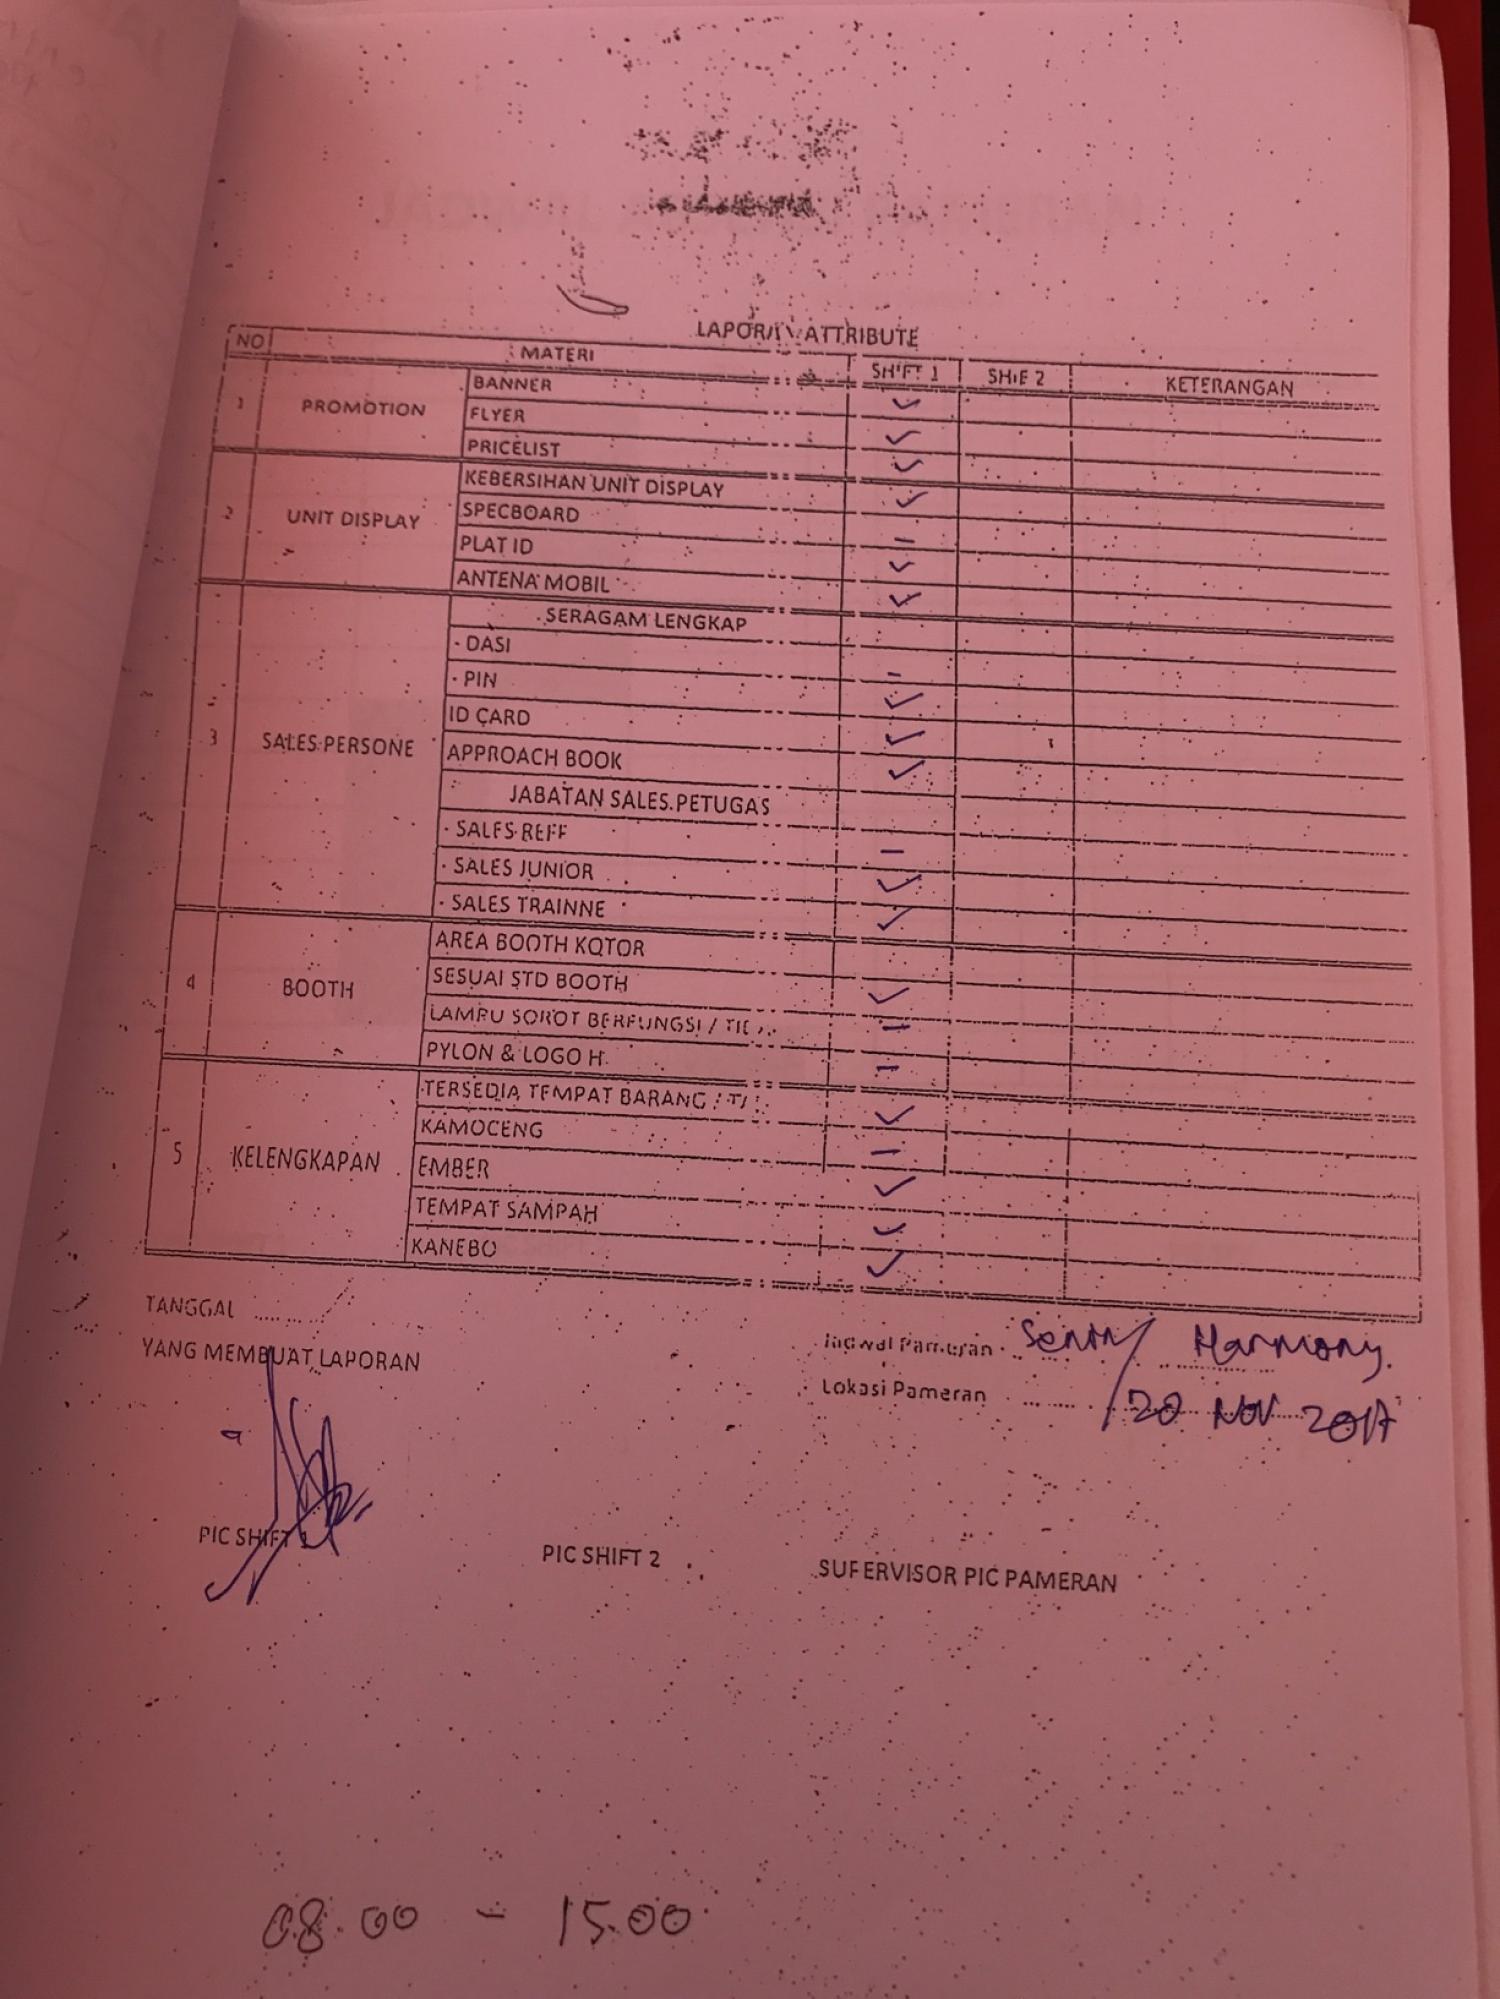 LAPORAN ATTRIBUTE
NO MATERI SHIFT 1 SHIF 2 KETERANGAN
1 PROMOTION BANNER ✓
FLYER ✓
PRICELIST ✓
2 UNIT DISPLAY KEBERSIHAN UNIT DISPLAY ✓
SPECBOARD –
PLAT ID ✓
ANTENA MOBIL ✓
3 SALES PERSONE SERAGAM LENGKAP
- DASI –
- PIN ✓
ID CARD ✓
APPROACH BOOK ✓
JABATAN SALES PETUGAS
- SALES REFF –
- SALES JUNIOR ✓
- SALES TRAINNE ✓
4 BOOTH AREA BOOTH KOTOR
SESUAI STD BOOTH ✓
LAMPU SOROT BERFUNGSI / –
PYLON & LOGO H –
5 KELENGKAPAN TERSEDIA TEMPAT BARANG / ✓
KAMOCENG –
EMBER ✓
TEMPAT SAMPAH ✓
KANEBO ✓
TANGGAL ..........
YANG MEMBUAT LAPORAN
Jadwal Pameran Senin / Harmony.
Lokasi Pameran / 20 Nov 2017
PIC SHIFT 1
PIC SHIFT 2
SUPERVISOR PIC PAMERAN
08.00 - 15.00